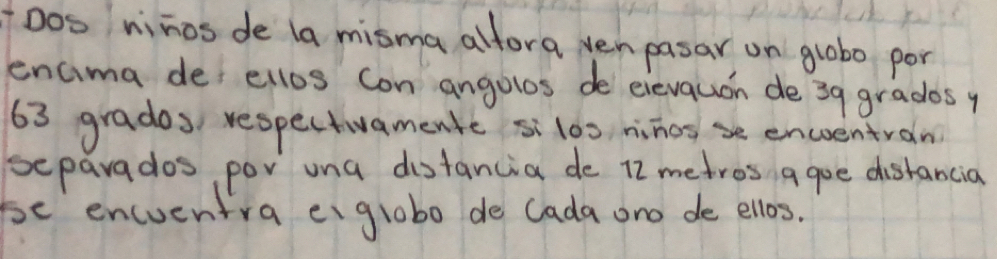 - Dos niños de la misma altora ven pasar un globo por
encima de ellos con angulos de elevación de 39 grados y
63 grados, respectivamente si los niños se encoentran
separados por una distancia de 12 metros a que distancia
se encuentra el globo de cada ono de ellos.